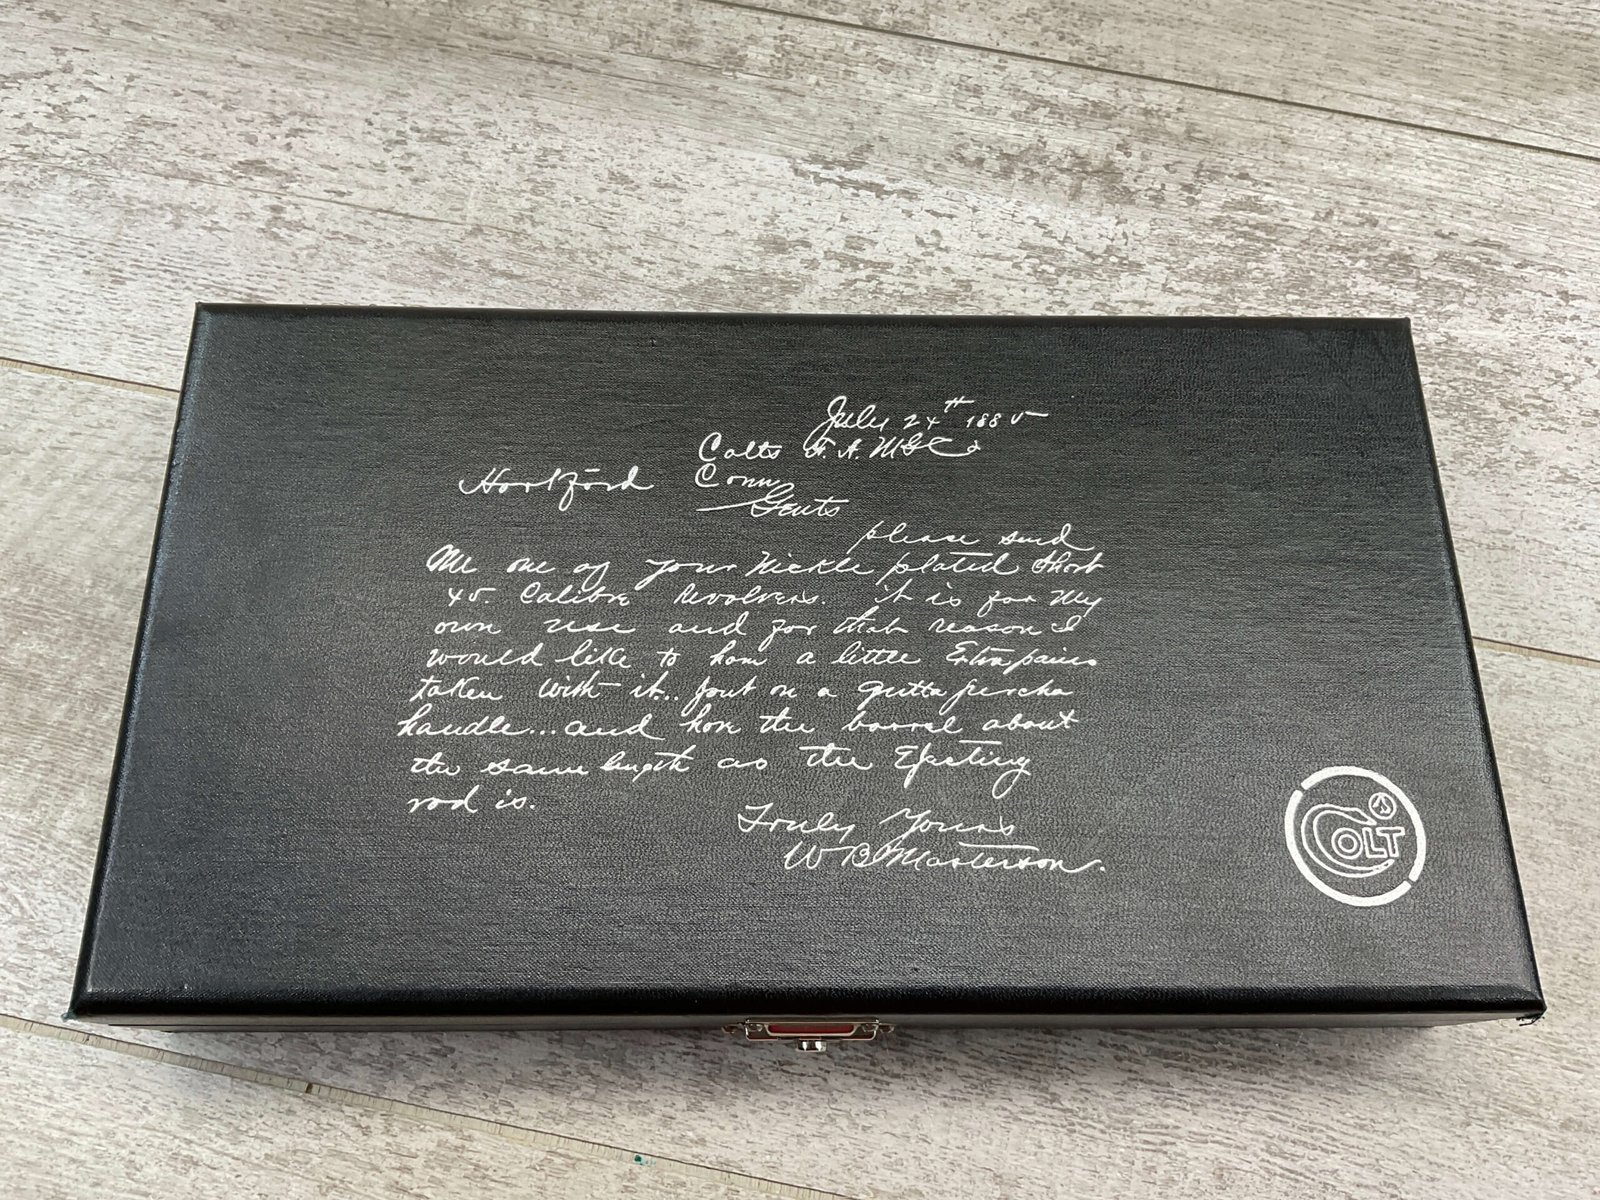 July 24th 1885
Colts F. A. M'f'g Co
Hartford Conn
Gents
please send
Me one of your Nickle plated short
45. Calibre Revolvers. it is for my
own use and for that reason I
would like to have a little Extra pains
taken with it.. put on a gutta percha
handle... and have the barrel about
the same length as the Ejecting
rod is.
Truly Yours
W B Masterson.
COLT